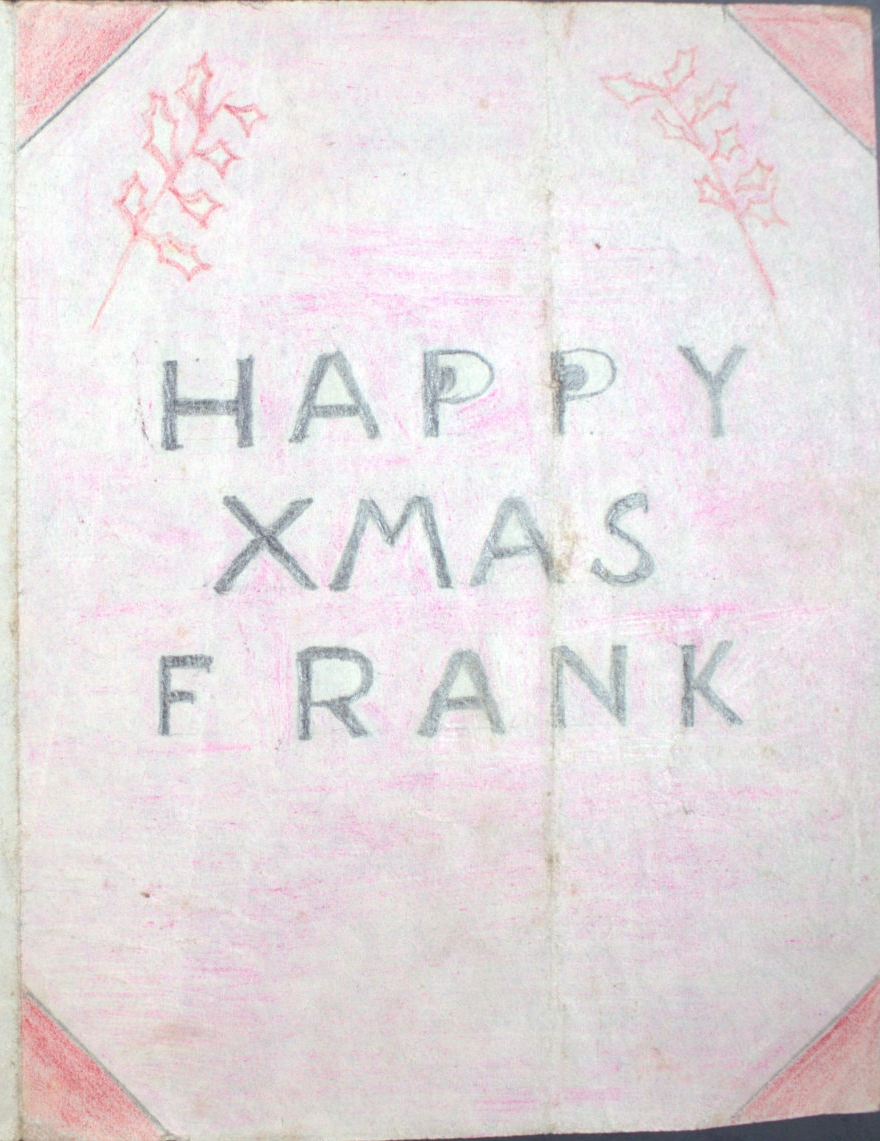 HAPPY
XMAS
FRANK